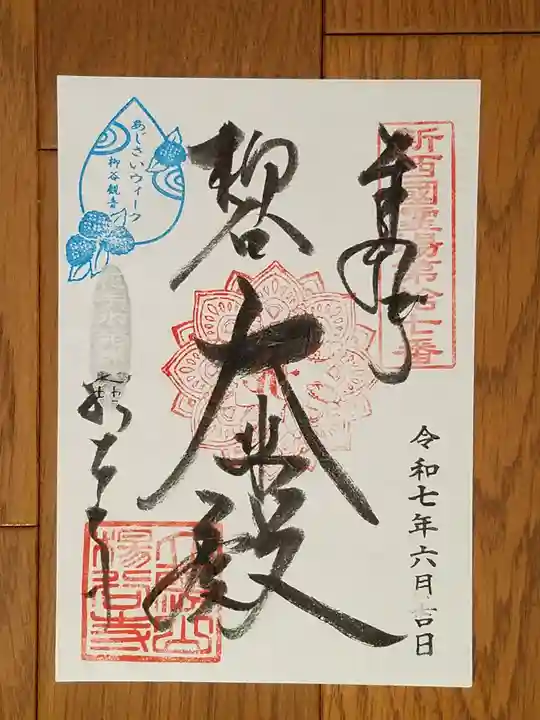 新西國霊場第拾七番
奉拝
令和七年六月吉日
柳谷
大悲殿
あじさいウィーク
柳谷観音
楊谷寺